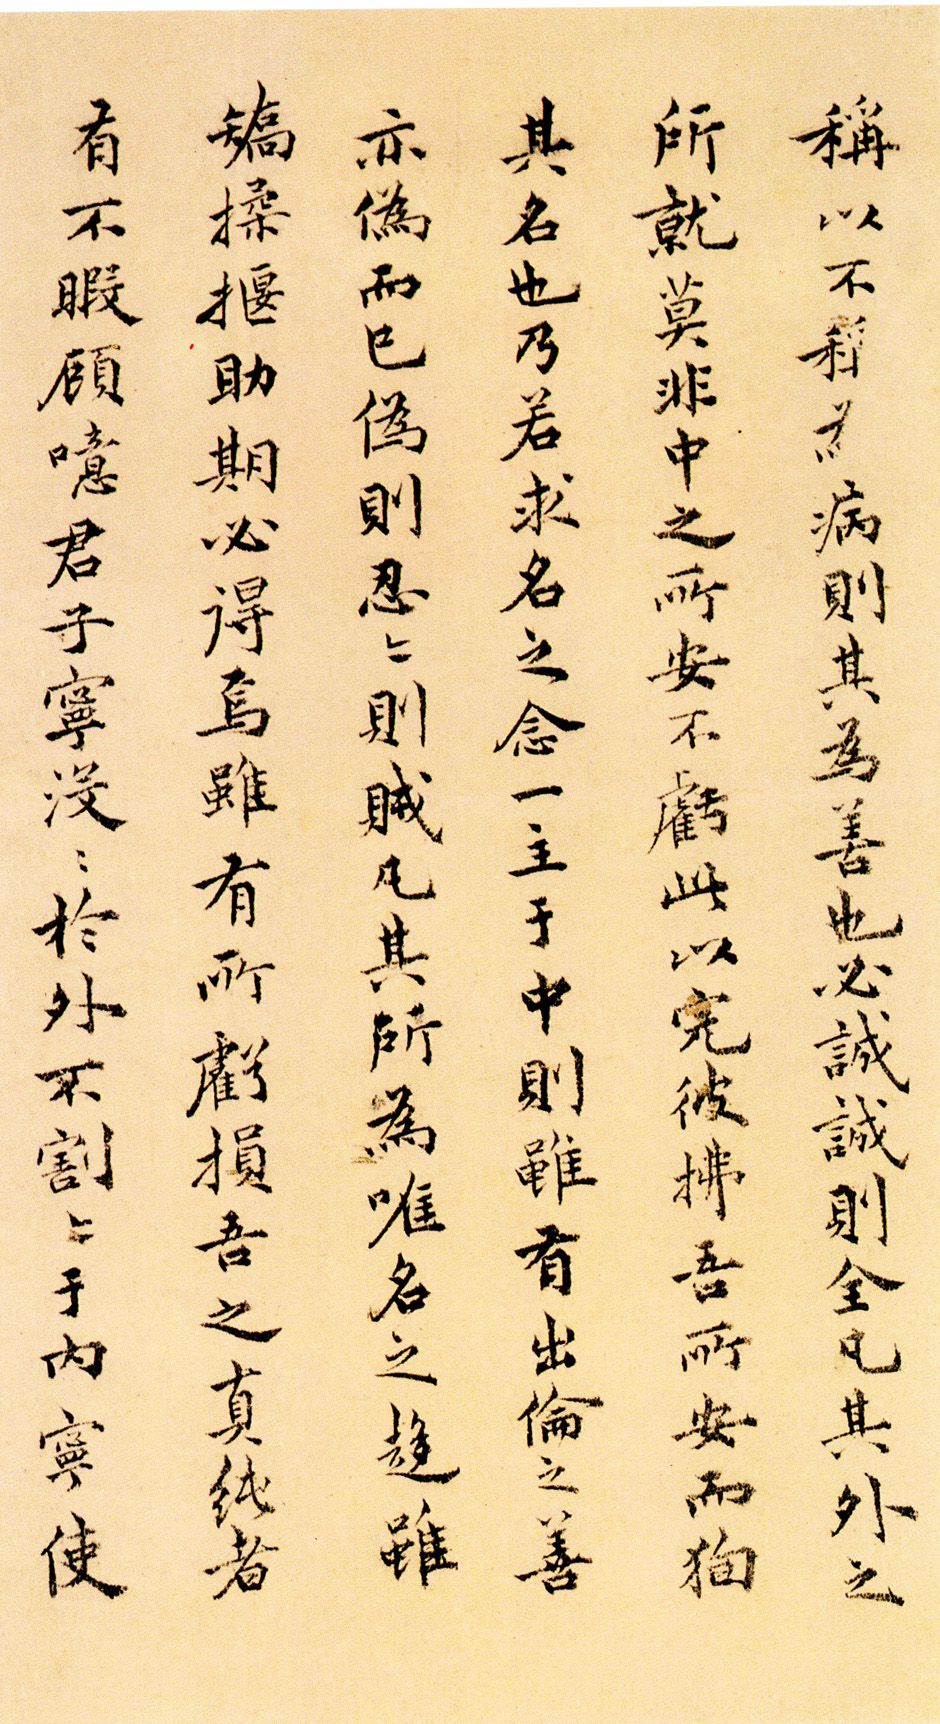 稱以不稱為病則其為善也必誠誠則全凡其外之
所就莫非中之所安不虧此以完彼拂吾所安而狥
其名也乃若求名之念一主于中則雖有出倫之善
亦偽而已偽則忍〻則賊凡其所為唯名之趍雖
矯揉揠助期必得焉雖有所虧損吾之真純者
有不暇顧噫君子寧沒〻於外不割〻于內寧使